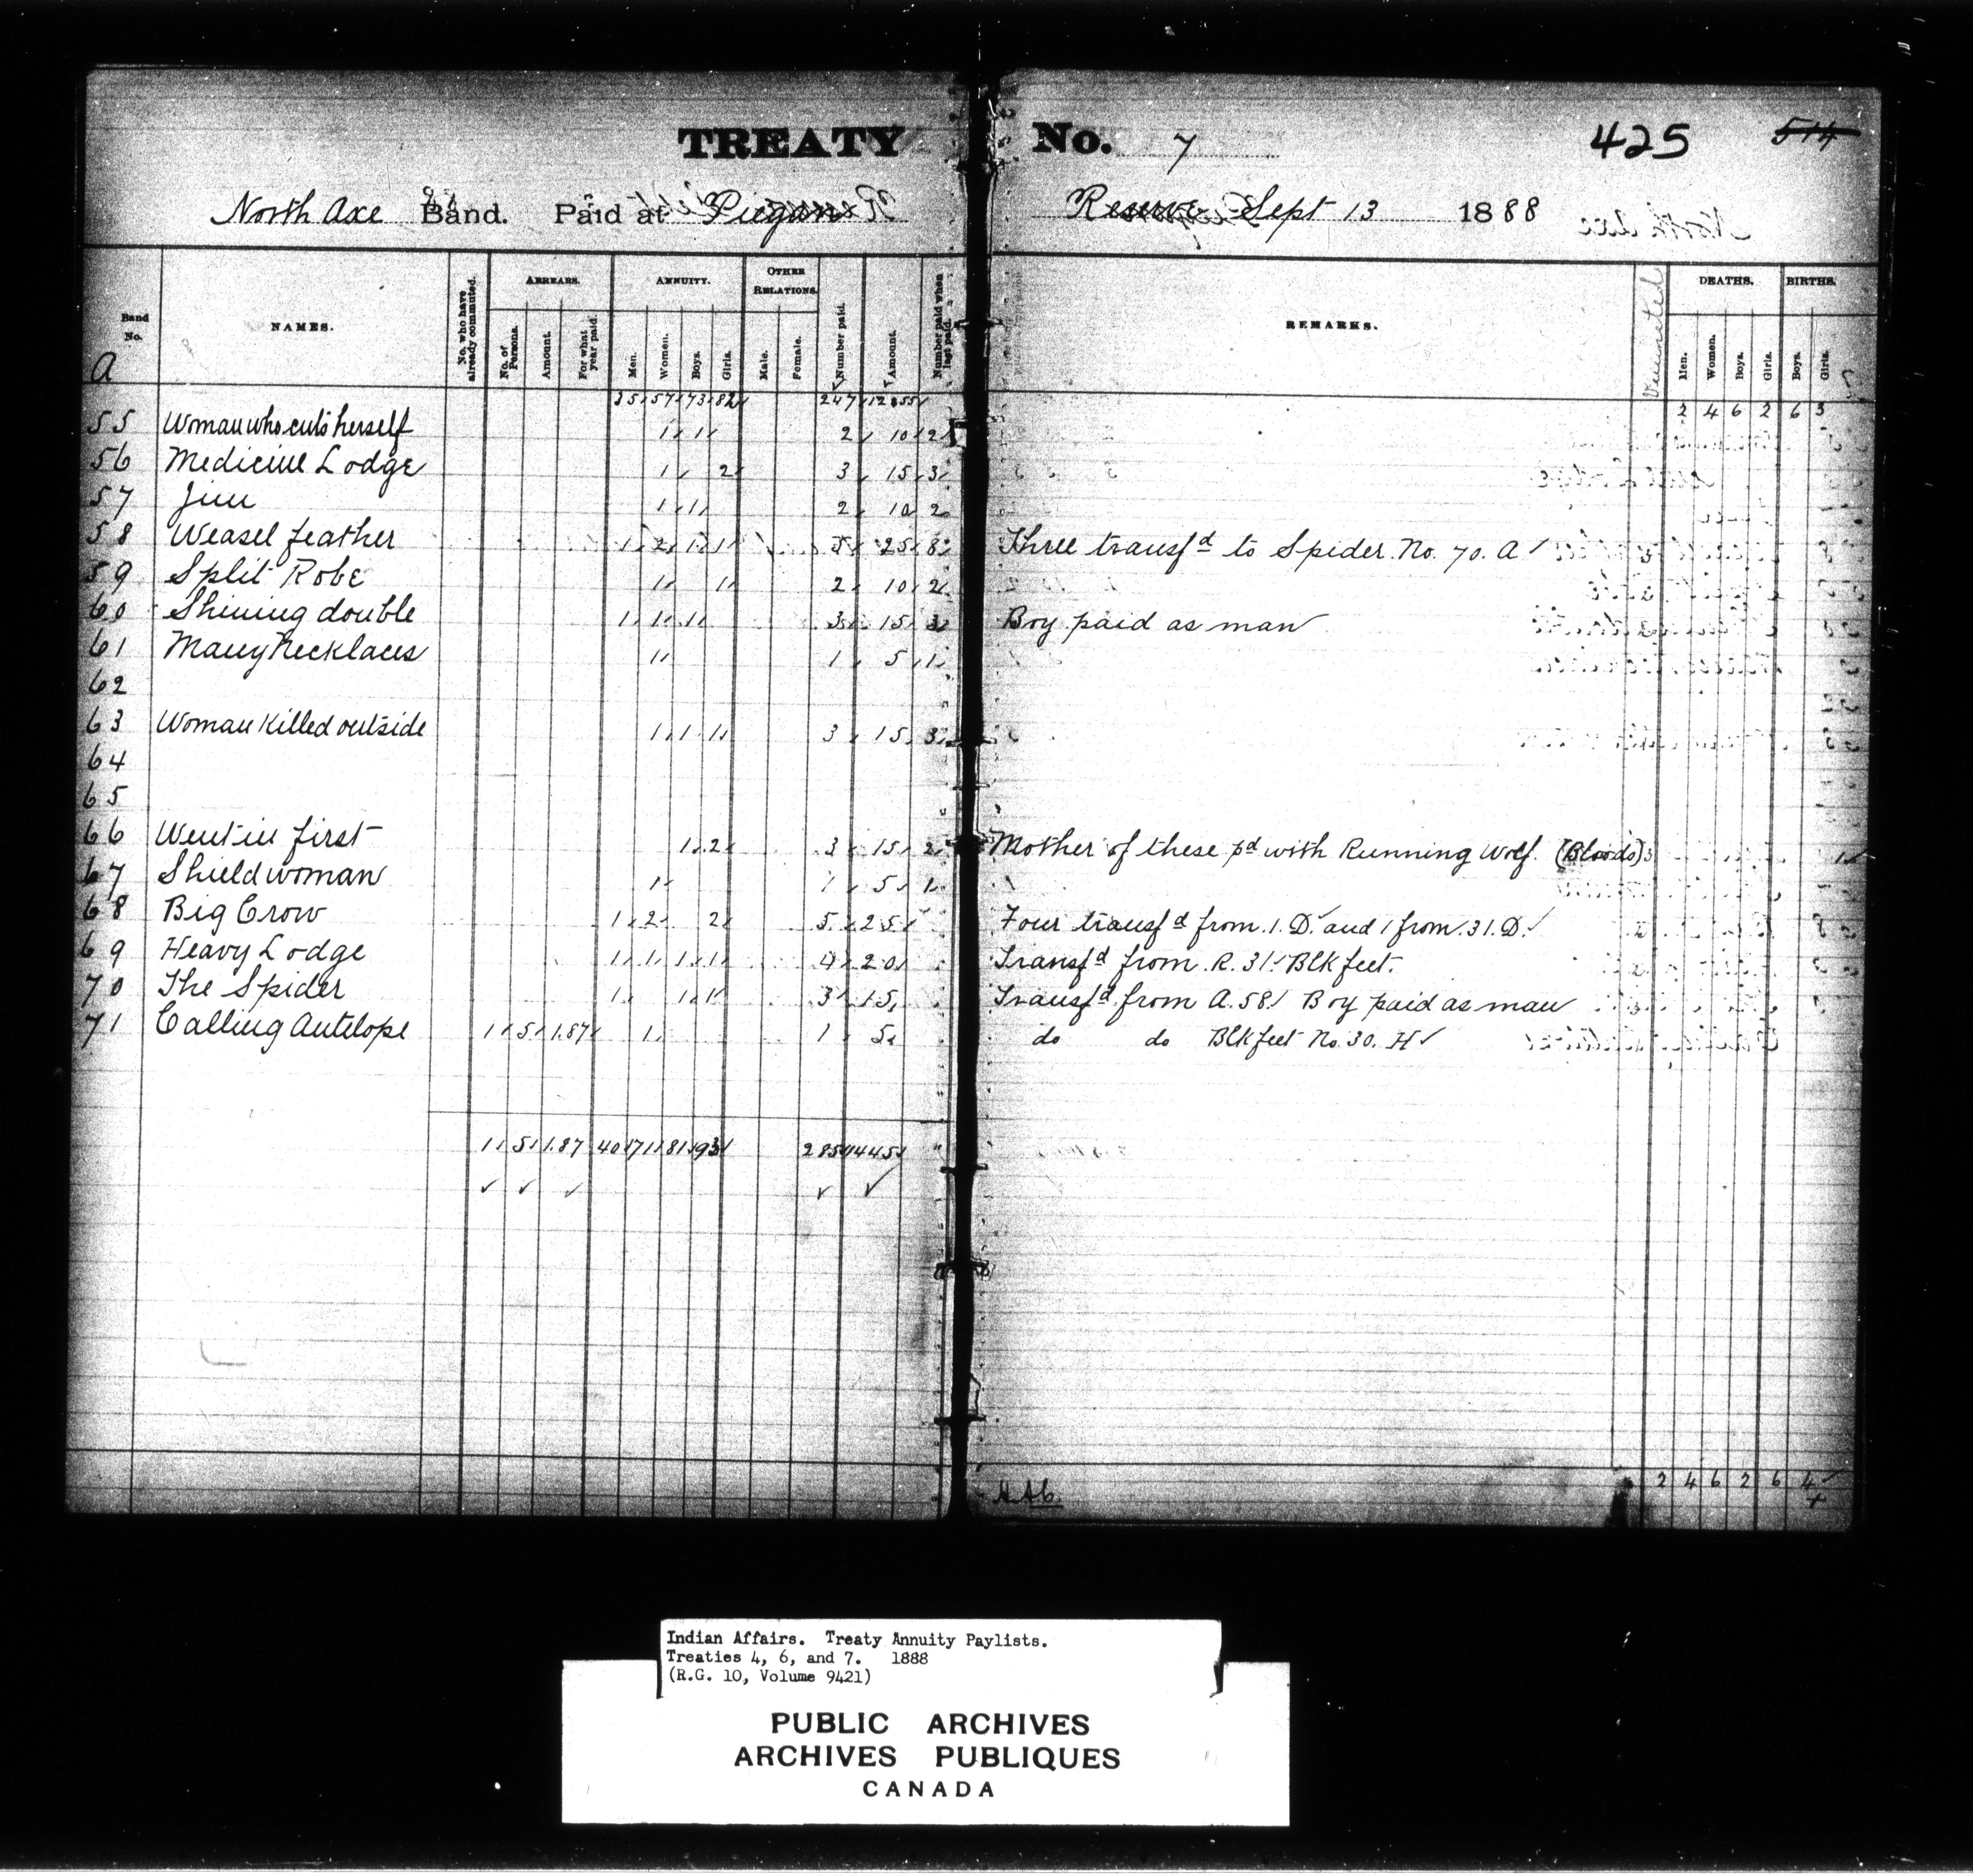 TREATY No. 7 425 514
North Axe Band. Paid at Piegan Reserve Sept 13 1888
Band No. NAMES. No. who have already commuted. ARREARS. No. of Persons. Amount. For what year paid. ANNUITY. Men. Women. Boys. Girls. OTHER RELATIONS. Male. Female. Number paid. Amount. Number paid when last paid. REMARKS. Vaccinated DEATHS. Men. Women. Boys. Girls. BIRTHS. Boys. Girls.
A
35 57 73 82 247 1235 2 4 6 2 6 3
55 Woman who cuts herself 1 1 2 10 2
56 Medicine Lodge 1 2 3 15 3
57 Jim 1 1 2 10 2
58 Weasel feather 1 2 1 1 5 25 8 Three transfd to Spider No. 70. A
59 Split Robe 1 1 2 10 2
60 Shining double 1 1 1 3 15 3 Boy paid as man
61 Many Necklaces 1 1 5 1
62
63 Woman Killed outside 1 1 1 3 15 3
64
65
66 Went in first 1 2 3 15 2 Mother of these pd with Running Wolf. (Bloods) 3 1
67 Shield woman 1 1 5 1
68 Big Crow 1 2 2 5 25 Four transfd from 1. D. and 1 from 31. D.
69 Heavy Lodge 1 1 1 1 4 20 Transfd from R. 31 Blkfeet.
70 The Spider 1 1 1 3 15 Transfd from A. 58 Boy paid as man
71 Calling Antelope 1 5 1.87 1 1 5 do do Blkfeet No. 30. H
1 5 1.87 40 71 81 93 285 1445
2 4 6 2 6 4
Indian Affairs. Treaty Annuity Paylists.
Treaties 4, 6, and 7. 1888
(R.G. 10, Volume 9421)
PUBLIC ARCHIVES
ARCHIVES PUBLIQUES
CANADA